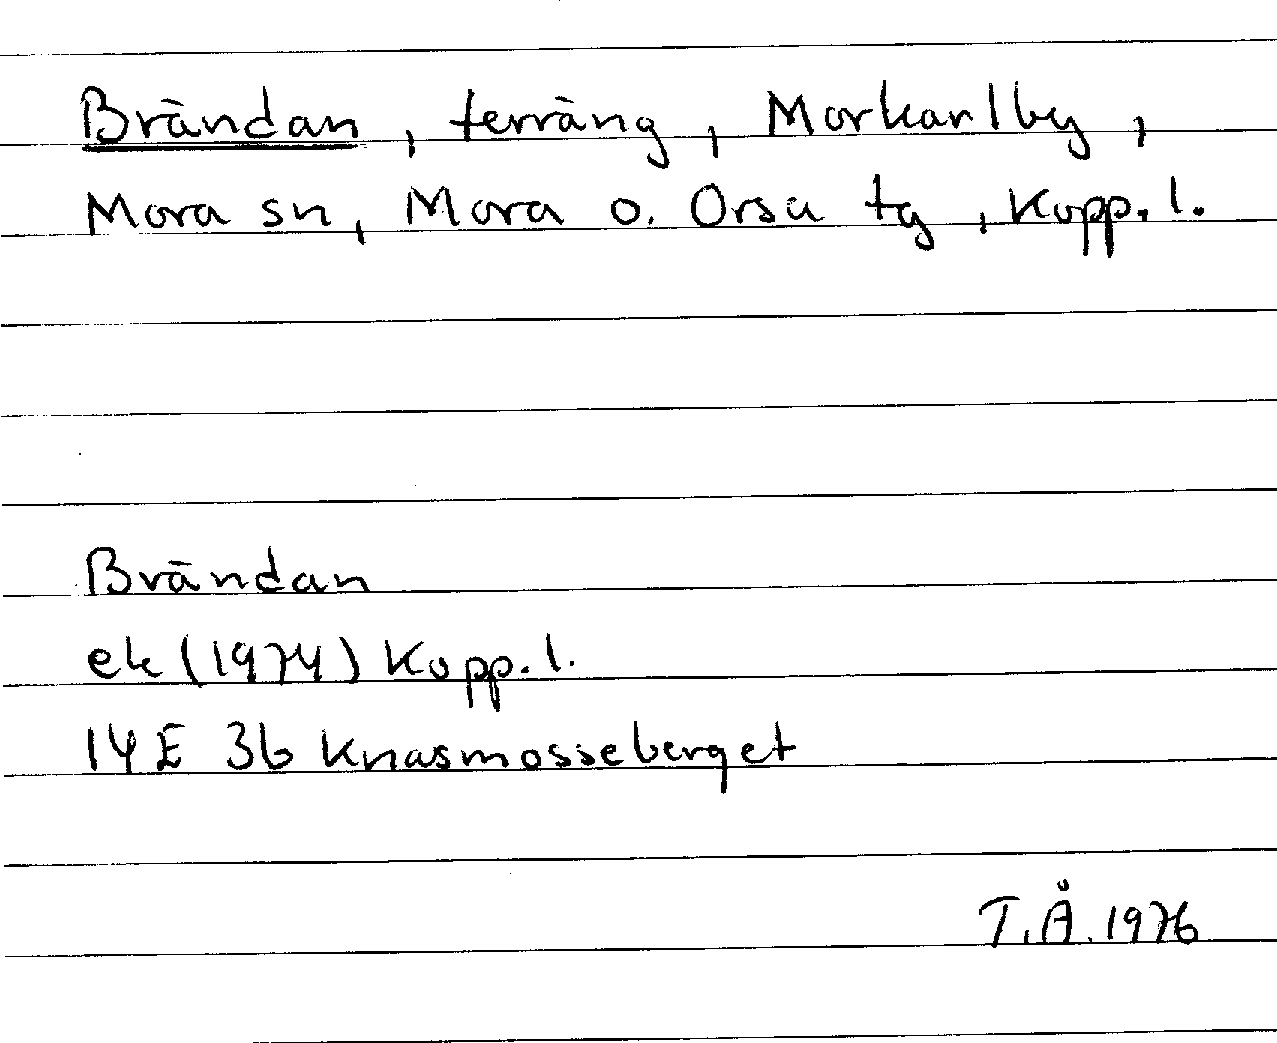 Brändan, terräng, Morkarlby,
Mora sn, Mora o. Orsa tg, Kopp. l.
Brändan
ek (1974) Kopp. l.
14E 3b Knasmosseberget
T.Å. 1976